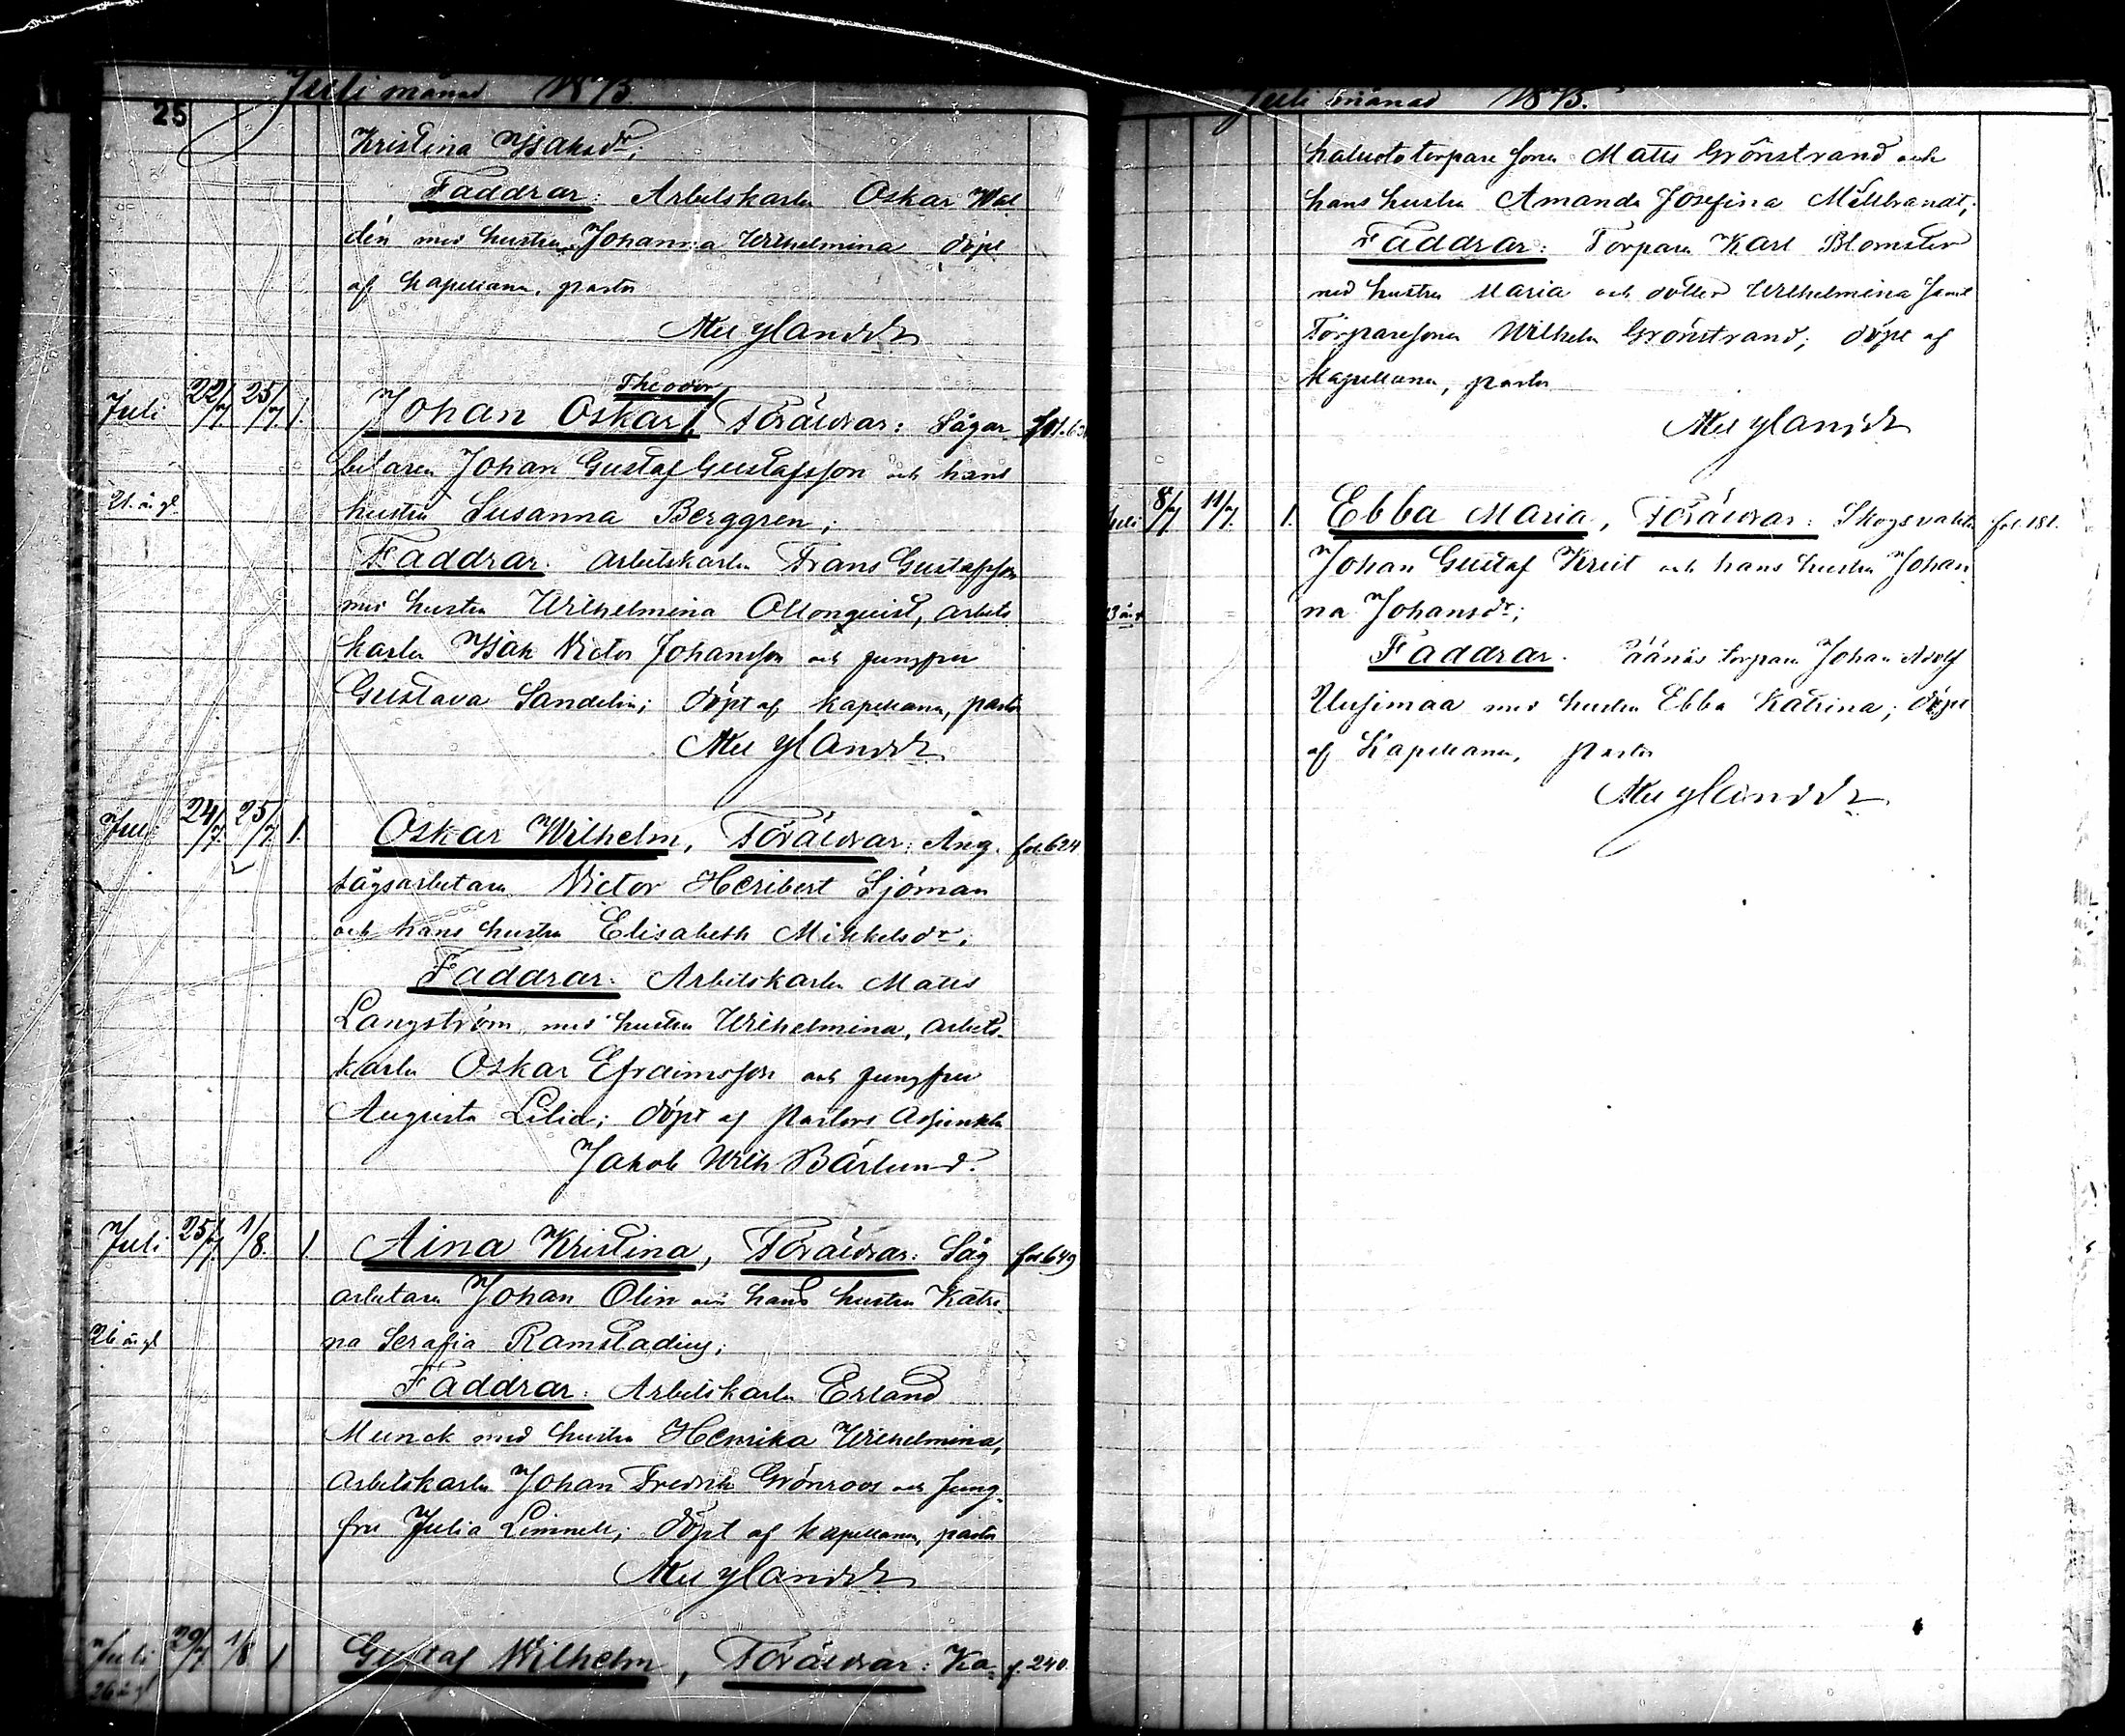 Juli månad 1875
25
Kristina Isaksdr;
Faddrar: Arbetskarlen Oskar Wal
dén med hustru Johanna Wilhelmina döpt
af kapellanen, pastor
Nylander
Theodor
Juli 22/7. 25/7. 1. Johan Oskar, Föräldrar: Sågar
betaren Johan Gustaf Gustafsson och hans
21. år gl. hustru Susanna Berggren;
Faddrar. Arbetskarlen Frans Gustafsson
med hustru Wilhelmina Ollonqvist, arbets
karlen Isak Victor Johansson och jungfru
Gustava Sandelin; döpt af kapellanen, pastor
Nylander
Juli 24/7. 25/7. 1. Oskar Wilhelm, Föräldrar: Ång. fol. 624.
sågsarbetaren Victor Heribert Sjöman
och hans hustru Elisabeth Mikkelsdr;
Faddrar: Arbetskarlen Matts
Langström med hustru Wilhelmina, arbets-
karlen Oskar Efraimsson och jungfru
Augusta Lilia; döpt af pastors Adjunkten
Jakob Wilh Bärlund.
Juli 25/7. 1/8. 1 Aina Kristina, Föräldrar: Såg fol 649
arbetaren Johan Olin och hans hustru Katri-
26 år gl na Serafia Ramstadius;
Faddrar: Arbetskarlen Erland
Munck med hustru Henrika Wilhelmina,
Arbetskarlen Johan Fredrik Grönroos och Jung-
fru Julia Limnell; döpt af kapellanen, pastor
Nylander
Juli 29/7. 1/8 1 Gustaf Wilhelm, Föräldrar: Ka- f. 240.
26 år gl
Juli månad 1875.
haluoto torpare sonen Matts Grönstrand och
hans hustru Amanda Josefina Millbrandt;
Faddrar: Torparen Karl Blomster
med hustru Maria och dotter Wilhelmina samt
Torparesonen Wilhelm Grönstrand; döpt af
Kapellanen, pastor
Nylander
Juli 8/7 11/7. 1. Ebba Maria, Föräldrar: Skogsvakten fol. 181.
Johan Gustaf Kreit och hans hustru Johan
na Johansdr;
Faddrar. Äänäs torparen Johan Adolf
Uusimaa med hustru Ebba Katrina; döpt
af Kapellanen, Pastor
Nylander